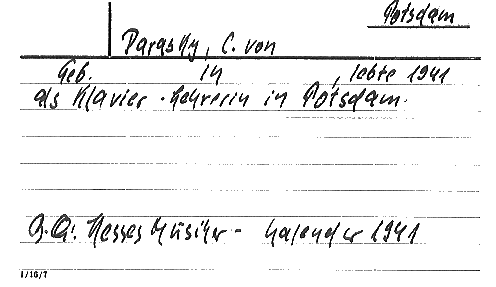 Potsdam
Parasky, C. von
Geb. in , lebte 1941
als Klavier-Lehrerin in Potsdam.
Q.A: Hesses Musiker-Kalender 1941
1/16/7